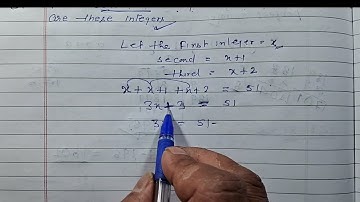 are these integers
Let the first integer = x
second = x+1
third = x+2
x + x+1 + x+2 = 51
3x + 3 = 51
3 = 51-